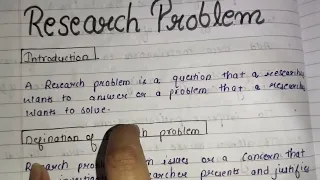 Research Problem
Introduction
A Research problem is a question that a researcher
wants to answer or a problem that a researcher
wants to solve.
Defination of problem
Research issues or a concern that
presents and justifies